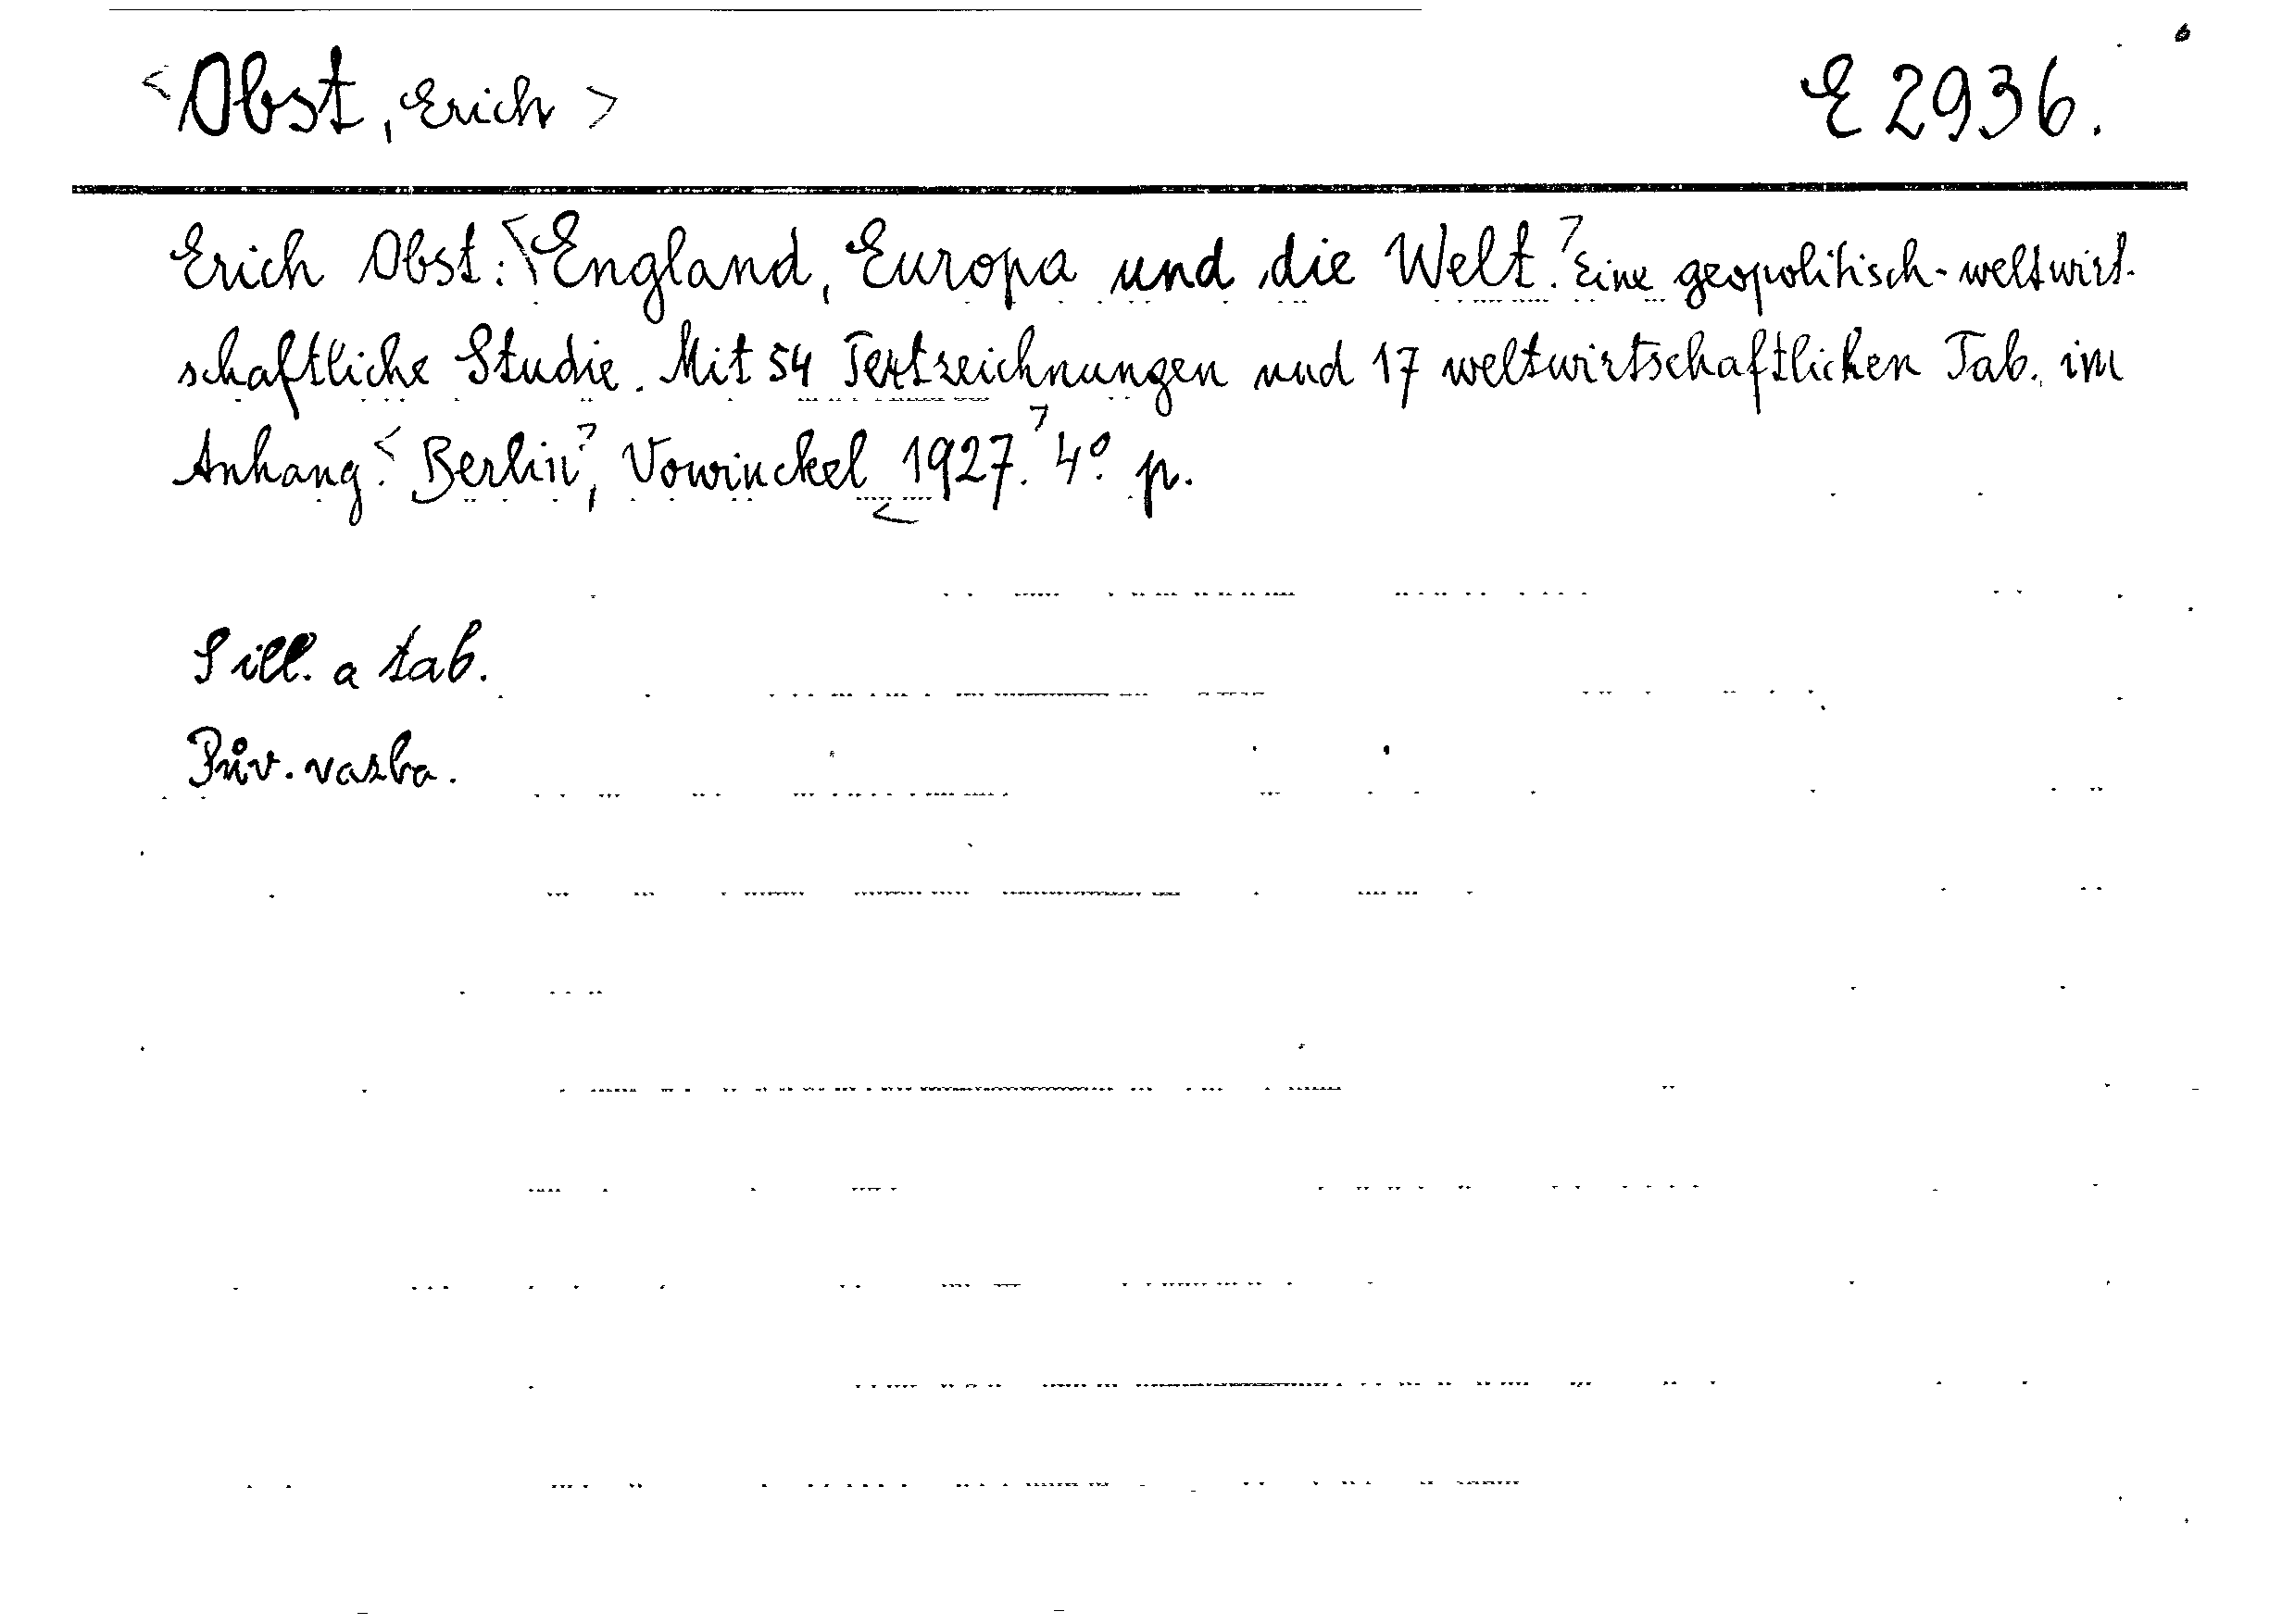 <Obst, Erich> E 2936.
Erich Obst: <England, Europa und die Welt.> Eine geopolitisch-weltwirt-
schaftliche Studie. Mit 54 Textzeichnungen und 17 weltwirtschaftlichen Tab. im
Anhang. <Berlin>, Vowinckel <1927.> 4° p.
S ill. a tab.
Pův. vazba.